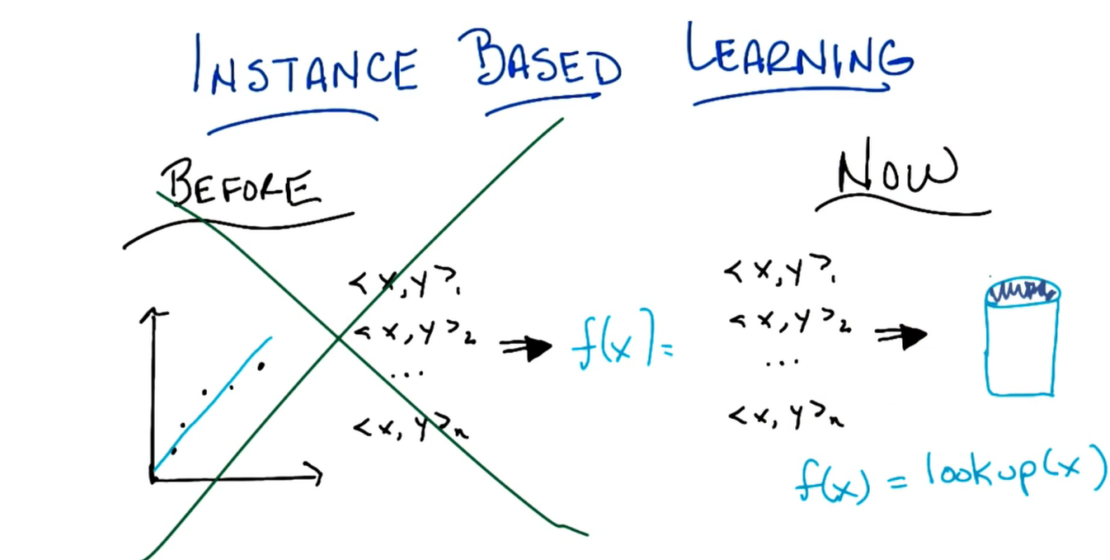 INSTANCE BASED LEARNING
BEFORE
<x,y>₁
<x,y>₂
...
<x,y>ₙ
f(x)=
NOW
<x,y>₁
<x,y>₂
...
<x,y>ₙ
f(x) = lookup(x)